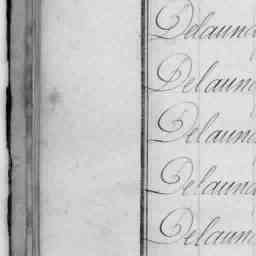 Delaun
Delaun
Delaun
Delaun
Delaun